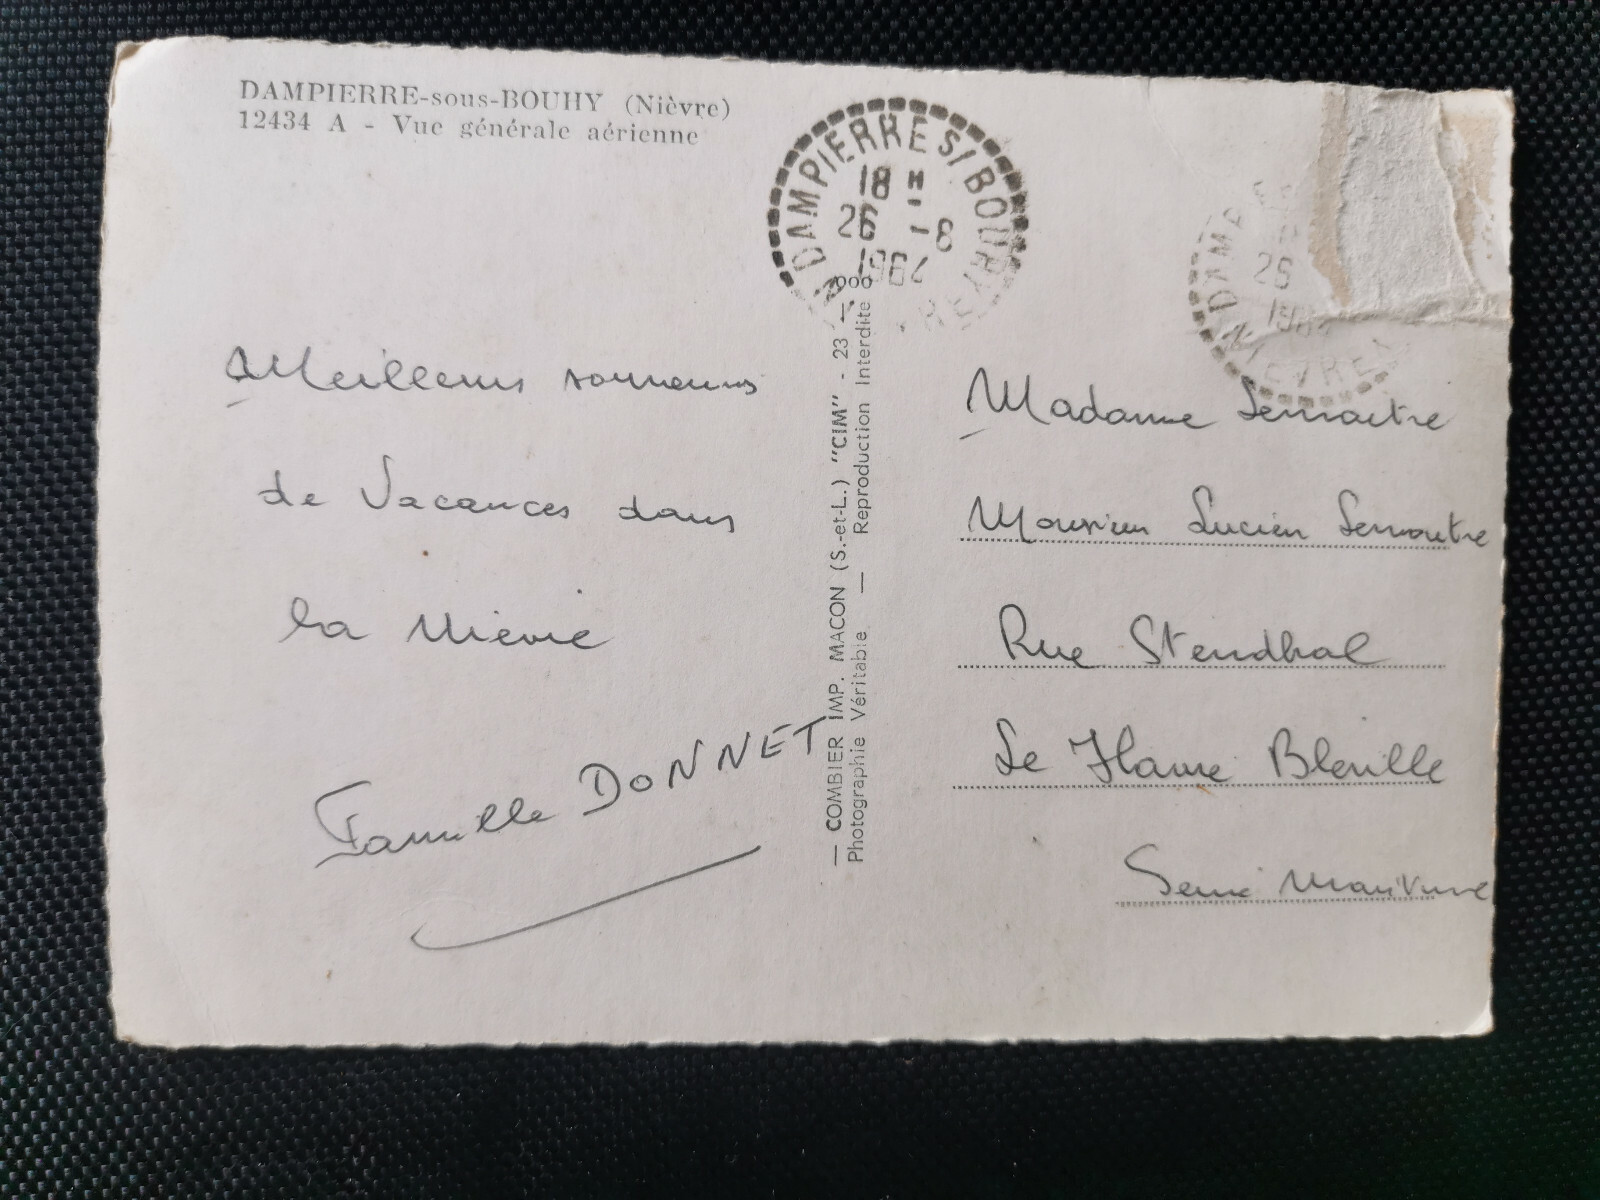 DAMPIERRE-sous-BOUHY (Nièvre)
12434 A - Vue générale aérienne
DAMPIERRE S/ BOUHY
18 H
26 -8
1964
NIEVRE
Meilleurs souvenirs
de Vacances dans
la Nièvre
Famille DONNET
— COMBIER IMP. MACON (S.-et-L.) "CIM" - 23 — 1000
Photographie Véritable — Reproduction Interdite
26
1964
NIEVRE
Madame Lemaitre
Monsieur Lucien Lemaitre
Rue Stendhal
Le Havre Bleville
Seine Maritime